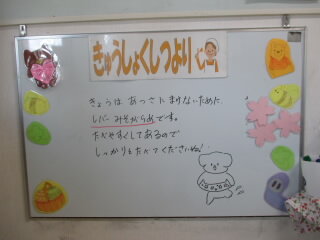 きゅうしょくしつより
きょうは あつさに まけないために
レバーみそがらめです。
たべやすくしてあるので
しっかりとたべてくださいね!